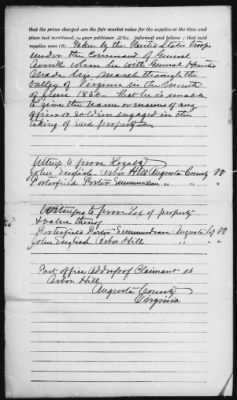 that the prices charged are the fair market value for the supplies so taken at the time and
place last mentioned, as your petitioner is informed and believes; that said
supplies were taken by the United States troops
under the Command of General
Averill when he with General Hunter
made his march through the
valley of Virginia in the month
of June 1864. That he is unable
to give the name or names of any
officer or soldier engaged in the
taking of said property
Witness to prove Loyalty
John English Arbor Hill Augusta County Va
Porterfield Porter " " "
Witnesses to prove Loss of property
& value thereof
Porterfield Porter Augusta Co Va
John English Arbor Hill " "
Post office address of Claimant is
Arbor Hill
Augusta County
Virginia